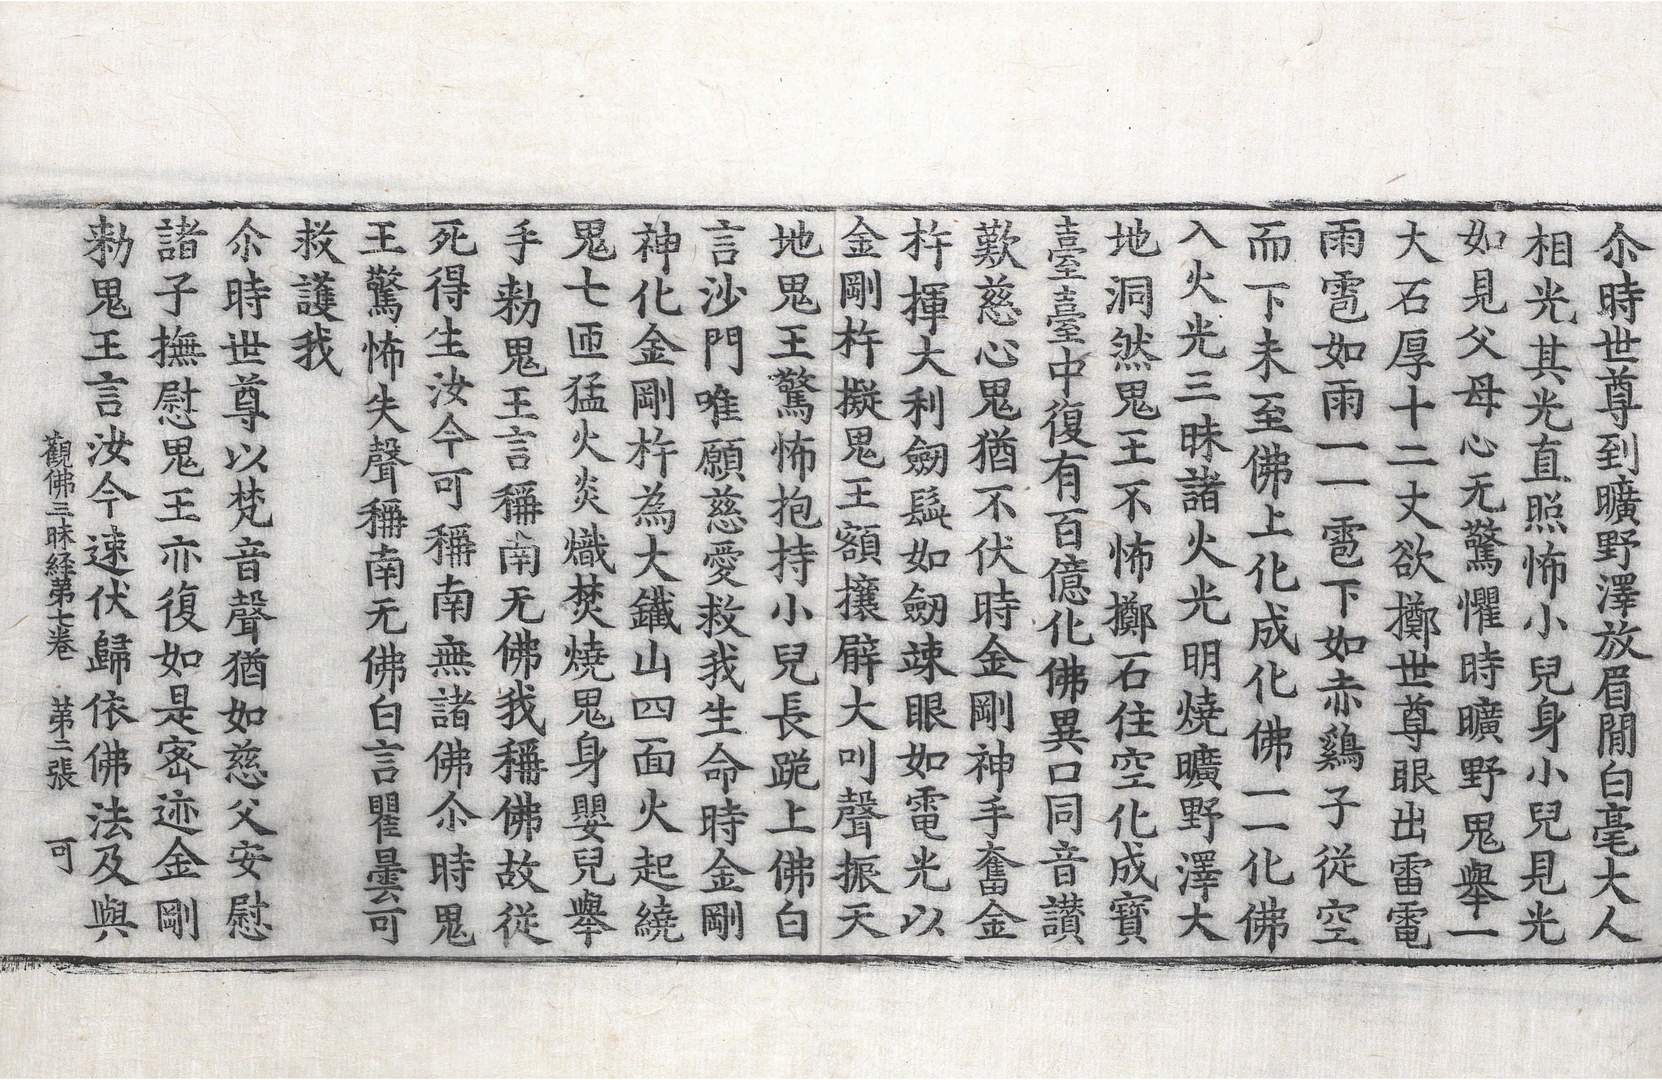 尒時世尊到曠野澤放眉閒白毫大人
相光其光直照怖小兒身小兒見光
如見父母心无驚懼時曠野鬼舉一
大石厚十二丈欲擲世尊眼出雷電
雨雹如雨一一雹下如赤鷄子従空
而下未至佛上化成化佛一一化佛
入火光三昧諸火光明燒曠野澤大
地洞然鬼王不怖擲石住空化成寶
臺臺中復有百億化佛異口同音讃
歎慈心鬼猶不伏時金剛神手奮金
杵揮大利劒髟如劒竦眼如電光以
金剛杵擬鬼王額攘臂大叫聲振天
地鬼王驚怖抱持小兒長跪上佛白
言沙門唯願慈愛救我生命時金剛
神化金剛杵為大鐵山四面火起繞
鬼七匝猛火炎熾焚燒鬼身嬰兒舉
手勑鬼王言稱南无佛我稱佛故従
死得生汝今可稱南無諸佛尒時鬼
王驚怖失聲稱南无佛白言瞿曇可
救護我
尒時世尊以梵音聲猶如慈父安慰
諸子撫慰鬼王亦復如是密迹金剛
勑鬼王言汝今速伏歸依佛法及與
觀佛三昧経第七卷 第二張 可